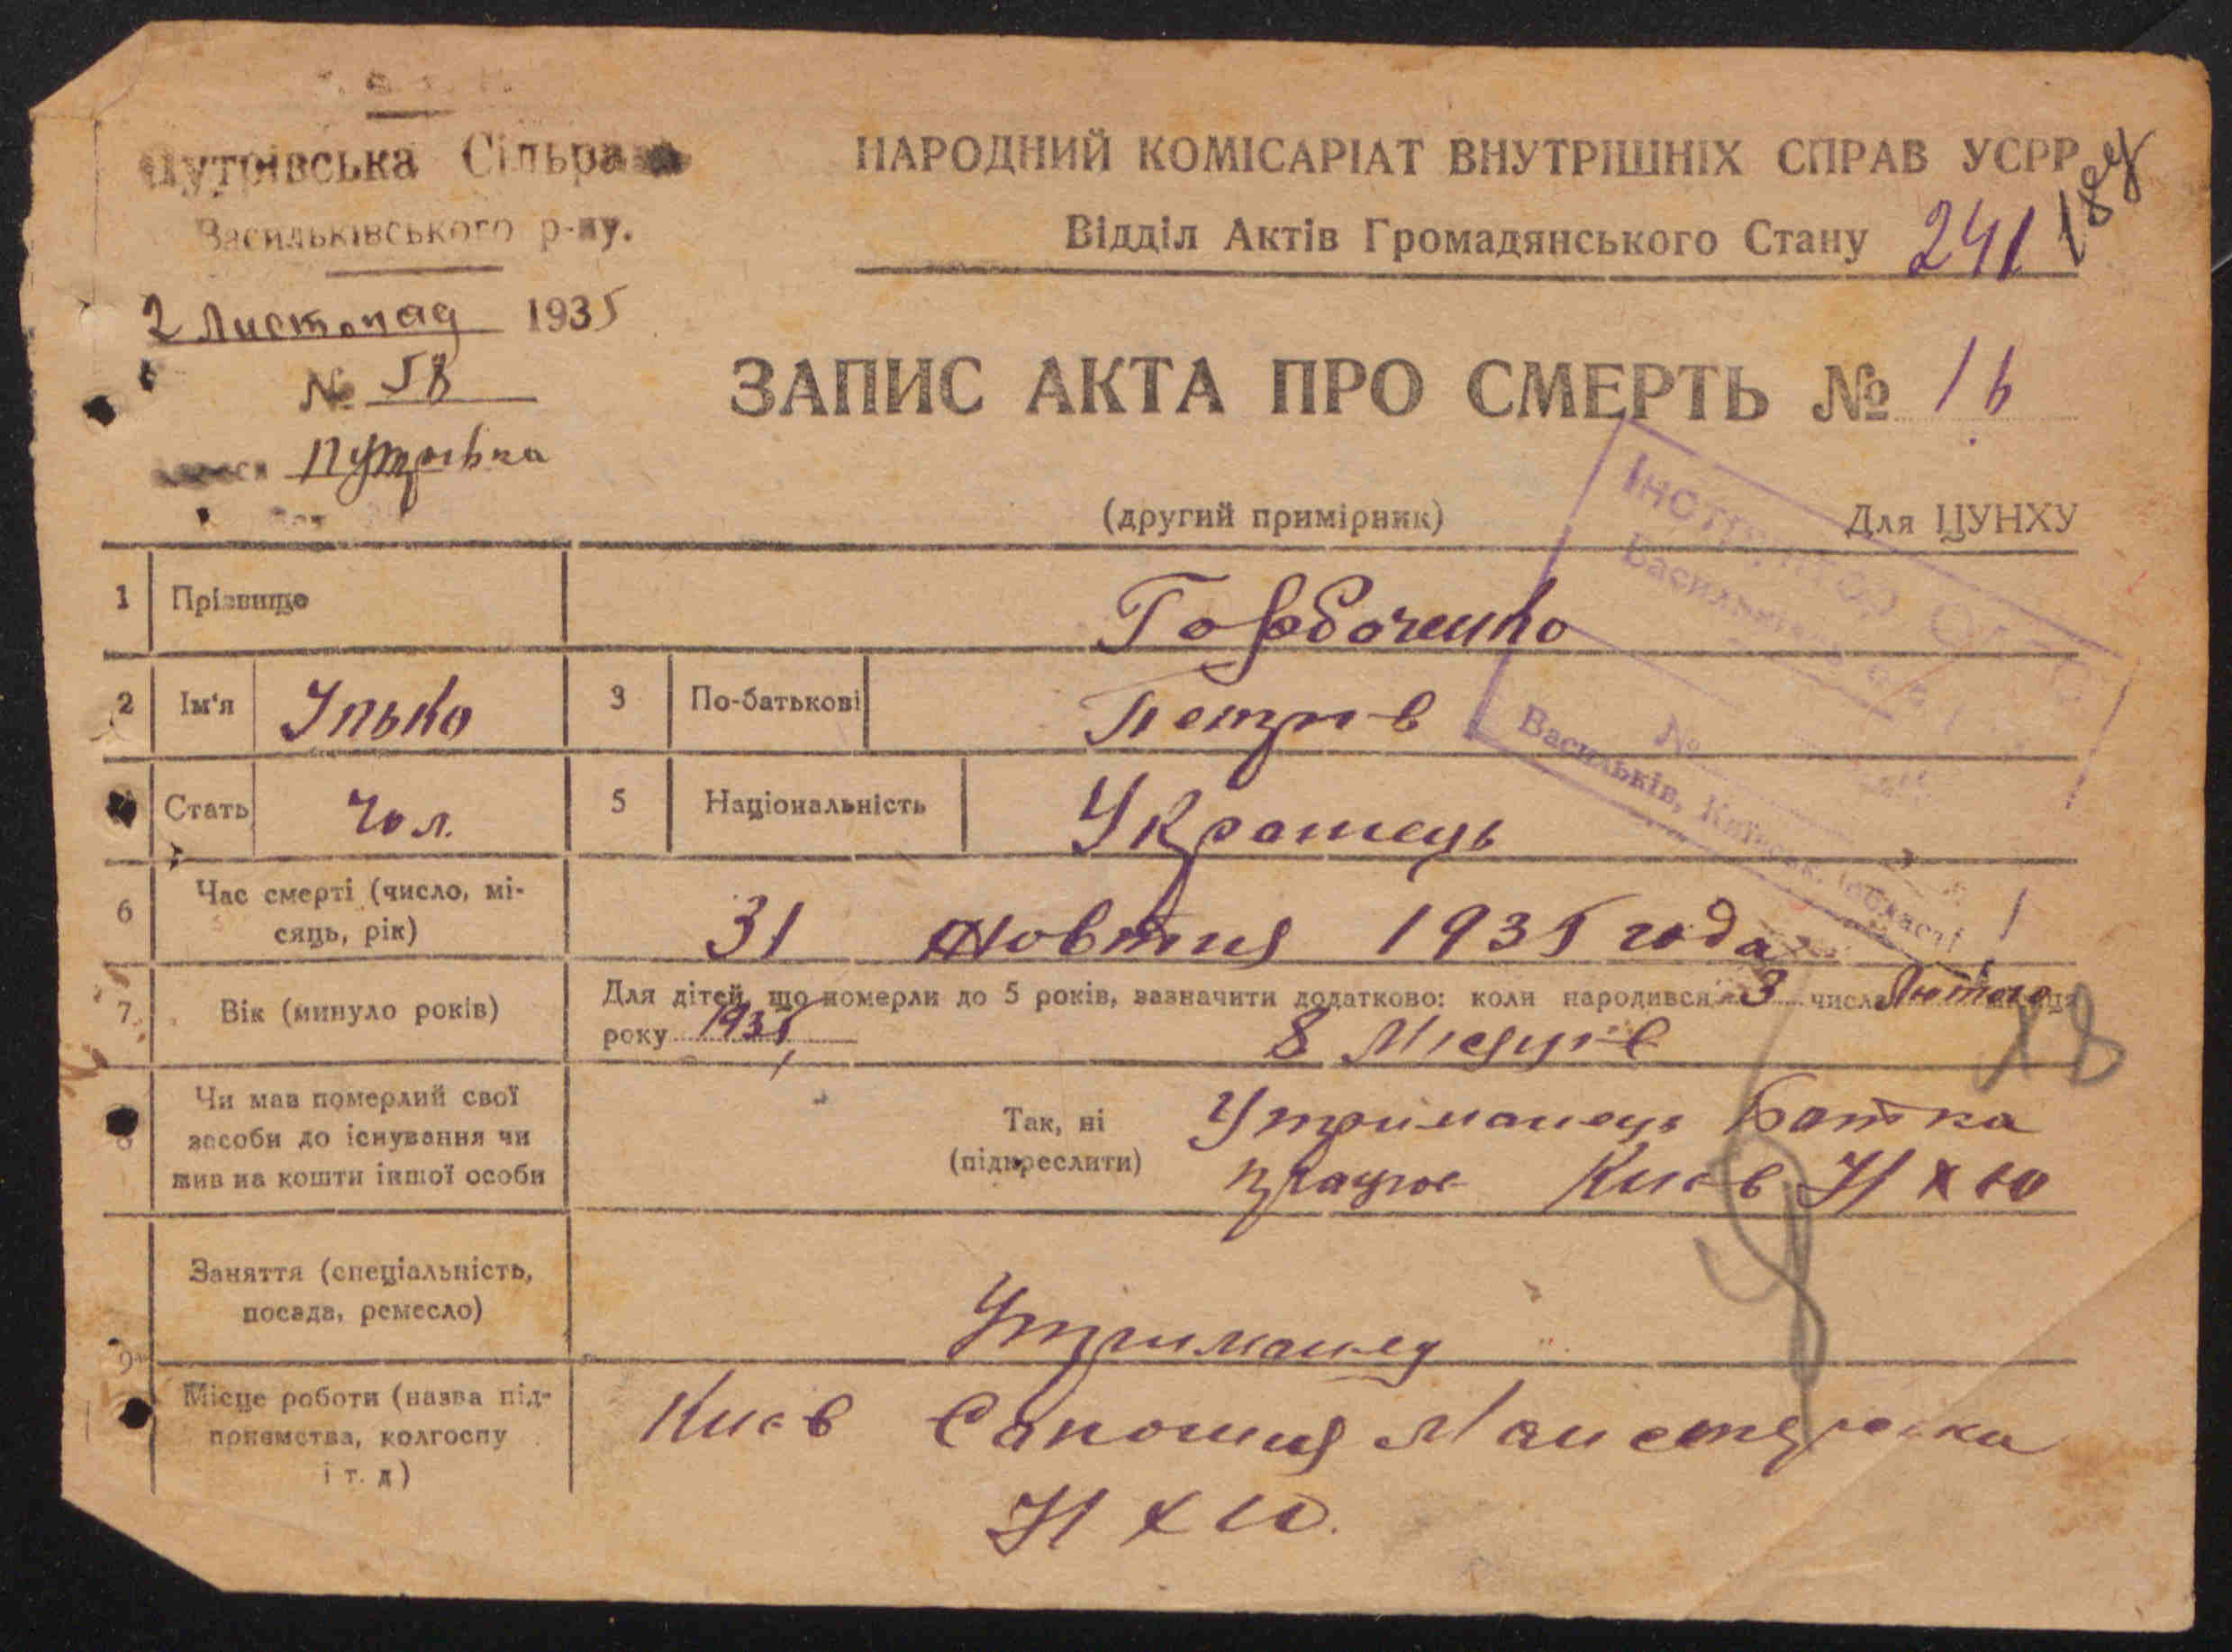 Путрівська Сільрада
Васильківського р-ну.
НАРОДНИЙ КОМІСАРІАТ ВНУТРІШНІХ СПРАВ УСРР
Відділ Актів Громадянського Стану 241
2 Листопад 1935
№ 58
Путрівка
ЗАПИС АКТА ПРО СМЕРТЬ № 16
(другий примірник)
Для ЦУНХУ
1 Прізвище Горбаченко
2 Ім'я Ілько 3 По-батькові Петров
Стать Чол. 5 Національність Українець
6 Час смерті (число, мі-
сяць, рік) 31 жовтня 1935 года
7 Вік (минуло років) Для дітей, що померли до 5 років, зазначити додатково: коли народився 3 числа Лютого місяця
року 1935 8 Місяців
18
8 Чи мав померлий свої
засоби до існування чи
жив на кошти іншої особи
Так, ні
(підкреслити)
Утриманець Батка
працює Києв Н х 10
9 Заняття (спеціальність,
посада, ремесло) Утриманец
Місце роботи (назва під-
приємства, колгоспу
і т. д)
Києв Сапошня
Н х 10.
Інструктор
Васильківського
№
Васильків, Київськ. області